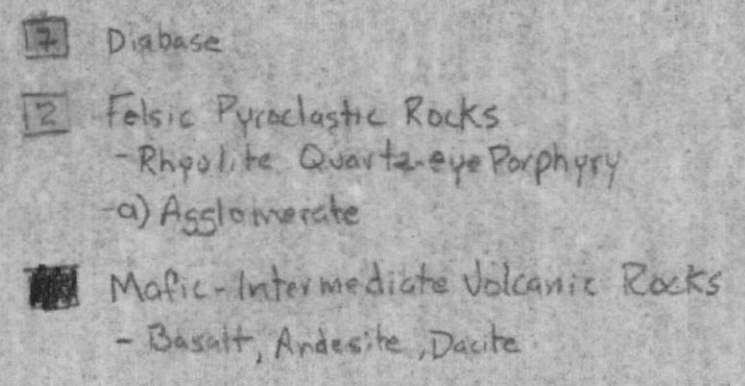 7 Diabase
2 Felsic Pyroclastic Rocks
- Rhyolite Quartz-eye Porphyry
-a) Agglomerate
Mafic-Intermediate Volcanic Rocks
- Basalt, Andesite, Dacite